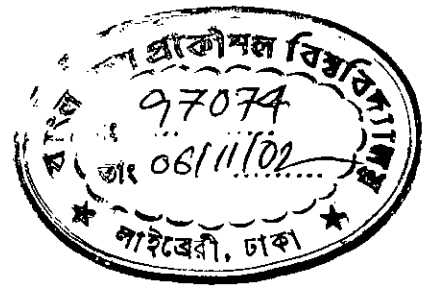 প্রকৌশল বিশ্ববিদ্যালয়
97074
তাং 06/11/02
লাইব্রেরী, ঢাকা